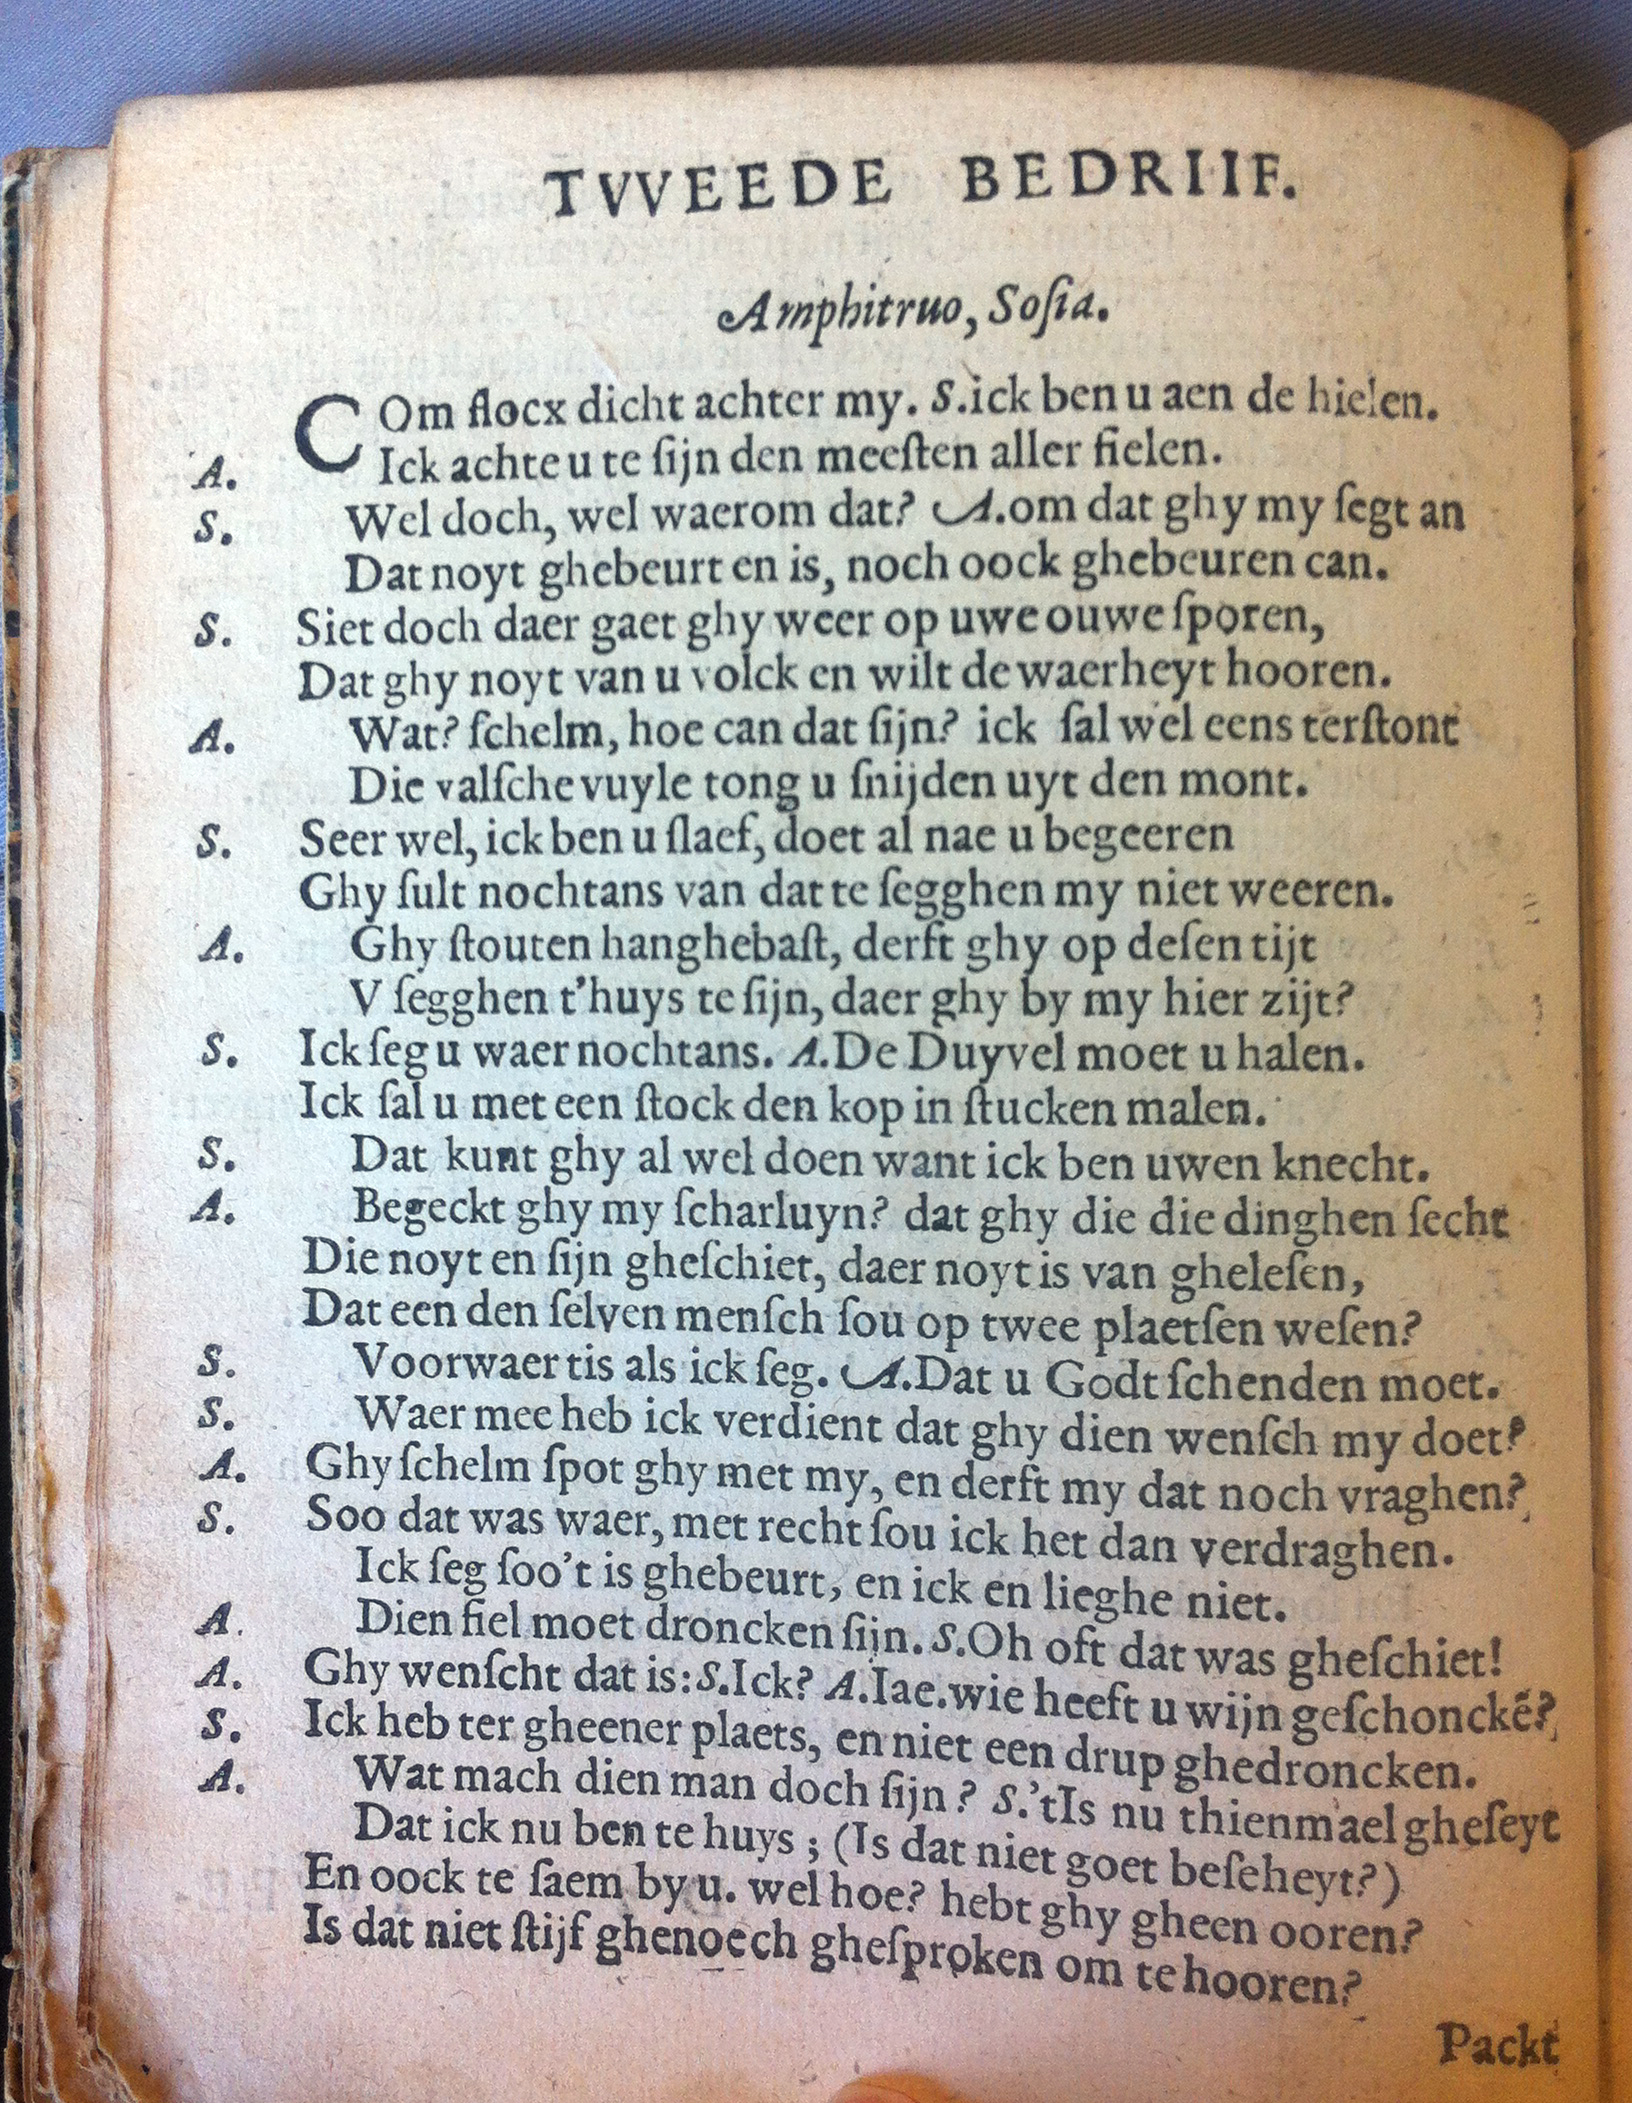 TVVEEDE BEDRIIF.
Amphitruo, Soſia.
COm flocx dicht achter my. S.ick ben u aen de hielen.
A. Ick achte u te ſijn den meeſten aller fielen.
S. Wel doch, wel waerom dat? A.om dat ghy my ſegt an
Dat noyt ghebeurt en is, noch oock ghebeuren can.
S. Siet doch daer gaet ghy weer op uwe ouwe ſporen,
Dat ghy noyt van u volck en wilt de waerheyt hooren.
A. Wat? ſchelm, hoe can dat ſijn? ick ſal wel eens terſtont
Die valſche vuyle tong u ſnijden uyt den mont.
S. Seer wel, ick ben u ſlaef, doet al nae u begeeren
Ghy ſult nochtans van dat te ſegghen my niet weeren.
A. Ghy ſtouten hanghebaſt, derft ghy op deſen tijt
V ſegghen t'huys te ſijn, daer ghy by my hier zijt?
S. Ick ſeg u waer nochtans. A.De Duyvel moet u halen.
Ick ſal u met een ſtock den kop in ſtucken malen.
S. Dat kunt ghy al wel doen want ick ben uwen knecht.
A. Begeckt ghy my ſcharluyn? dat ghy die die dinghen ſecht
Die noyt en ſijn gheſchiet, daer noyt is van gheleſen,
Dat een den ſelven menſch ſou op twee plaetſen weſen?
S. Voorwaer tis als ick ſeg. A.Dat u Godt ſchenden moet.
S. Waer mee heb ick verdient dat ghy dien wenſch my doet?
A. Ghy ſchelm ſpot ghy met my, en derft my dat noch vraghen?
S. Soo dat was waer, met recht ſou ick het dan verdraghen.
Ick ſeg ſoo't is ghebeurt, en ick en lieghe niet.
A. Dien fiel moet droncken ſijn. S.Oh oft dat was gheſchiet!
A. Ghy wenſcht dat is: S.Ick? A.Iae.wie heeft u wijn geſchonckẽ?
S. Ick heb ter gheener plaets, en niet een drup ghedroncken.
A. Wat mach dien man doch ſijn? S.'tIs nu thienmael gheſeyt
Dat ick nu ben te huys; (Is dat niet goet beſeheyt?)
En oock te ſaem by u. wel hoe? hebt ghy gheen ooren?
Is dat niet ſtijf ghenoech gheſproken om te hooren?
Packt